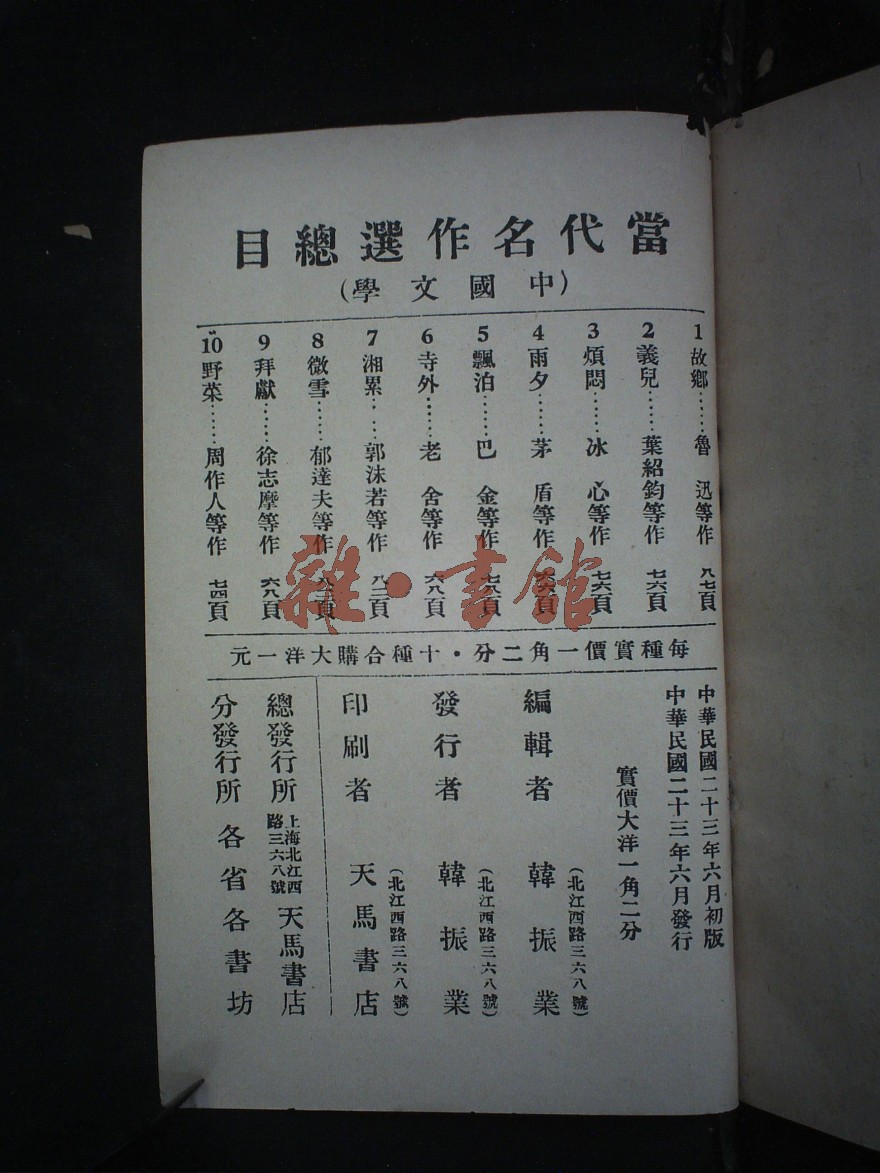 當代名作選總目
(中國文學)
1 故鄉……魯 迅等作 八七頁
2 義兒……葉紹鈞等作 七六頁
3 煩悶……冰 心等作 七六頁
4 雨夕……茅 盾等作 頁
5 飄泊……巴 金等作 七八頁
6 寺外……老 舍等作 六八頁
7 湘累……郭沫若等作 八二頁
8 微雪……郁達夫等作 頁
9 拜獻……徐志摩等作 六八頁
10 野菜……周作人等作 七四頁
每種實價一角二分·十種合購大洋一元
中華民國二十三年六月初版
中華民國二十三年六月發行
實價大洋一角二分
編輯者 韓振業
(北江西路三六八號)
發行者 韓振業
(北江西路三六八號)
印刷者 天馬書店
(北江西路三六八號)
總發行所 上海北江西路三六八號 天馬書店
分發行所 各省各書坊
雜·書館